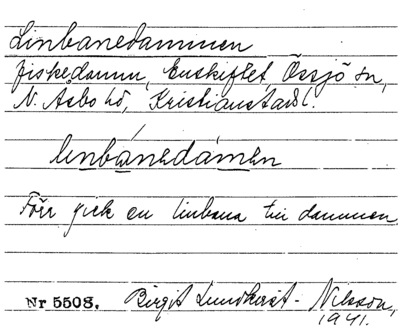 Linbanedammen
fiskedamm, Enskiftet Össjö sn,
N. Åsbo hd, Kristianstads l.
linbánedámen
Förr gick en linbana till dammen.
Nr 5508. Birgit Lundkvist - Nilsson,
1941.